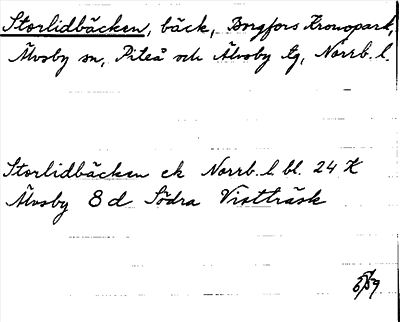 Storlidbäcken, bäck, Borgfors Kronopark,
Älvsby sn, Piteå och Älvsby tg, Norrb. l.
Storlidbäcken ek Norrb. l bl. 24 K
Älvsby 8 d Södra Vistträsk